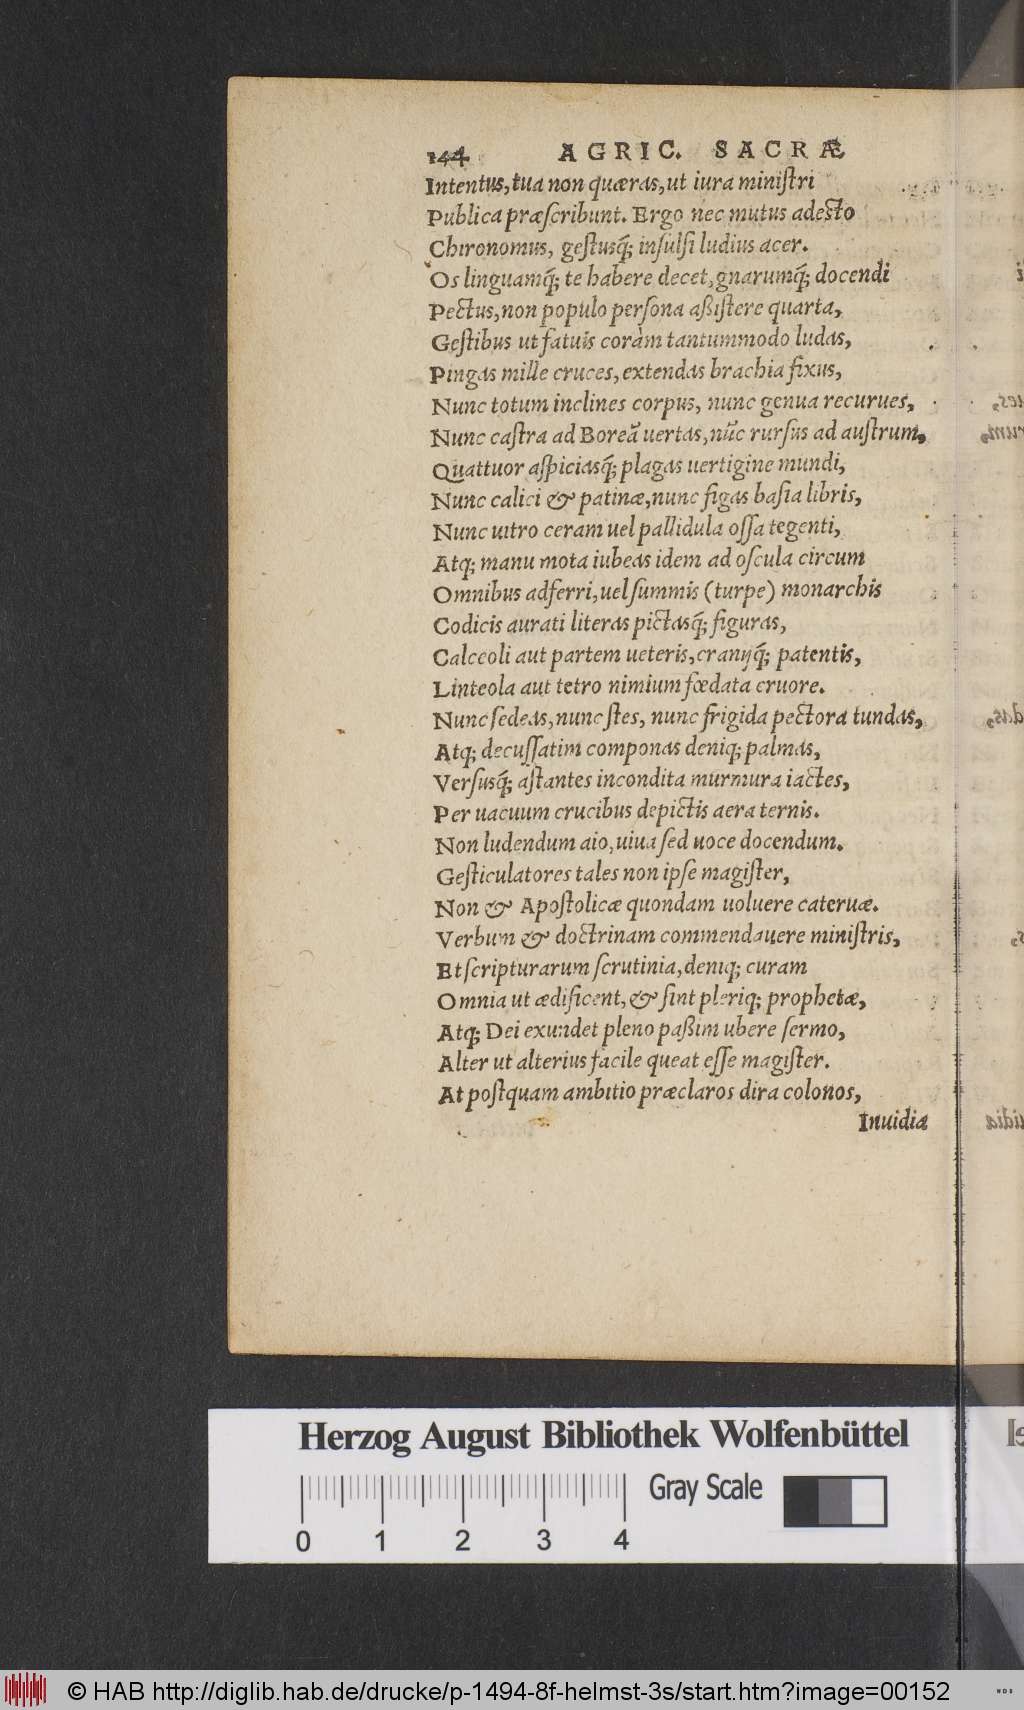 144 AGRIC. SACRÆ
Intentus, tua non quæras, ut iura miniſtri
Publica præſcribunt. Ergo nec mutus adesto
Chironomus, geſtusq́; inſulſi ludius acer.
Os linguamq́; te habere decet, gnarumq́; docendi
Pectus, non populo perſona aßiſtere quarta,
Geſtibus ut fatuis coràm tantummodo ludas,
Pingas mille cruces, extendas brachia fixus,
Nunc totum inclines corpus, nunc genua recurues,
Nunc caſtra ad Boreā uertas, nūc rurſus ad auſtrum,
Quattuor aſpiciasq́; plagas uertigine mundi,
Nunc calici & patinæ, nunc figas baſia libris,
Nunc uitro ceram uel pallidula oſſa tegenti,
Atq; manu mota iubeas idem ad oſcula circum
Omnibus adferri, uel ſummis (turpe) monarchis
Codicis aurati literas pictasq́; figuras,
Calceoli aut partem ueteris, cranijq́; patentis,
Linteola aut tetro nimium fœdata cruore.
Nunc ſedeas, nunc ſtes, nunc frigida pectora tundas,
Atq; decuſſatim componas deniq; palmas,
Verſusq́; aſtantes incondita murmura iactes,
Per uacuum crucibus depictis aera ternis.
Non ludendum aio, uiua ſed uoce docendum.
Geſticulatores tales non ipſe magiſter,
Non & Apoſtolicæ quondam uoluere cateruæ.
Verbum & doctrinam commendauere miniſtris,
Et ſcripturarum ſcrutinia, deniq; curam
Omnia ut ædificent, & ſint pleriq; prophetæ,
Atq; Dei exundet pleno paßim ubere ſermo,
Alter ut alterius facile queat eſſe magiſter.
At poſtquam ambitio præclaros dira colonos,
Inuidia
Herzog August Bibliothek Wolfenbüttel
0 1 2 3 4 Gray Scale
© HAB http://diglib.hab.de/drucke/p-1494-8f-helmst-3s/start.htm?image=00152